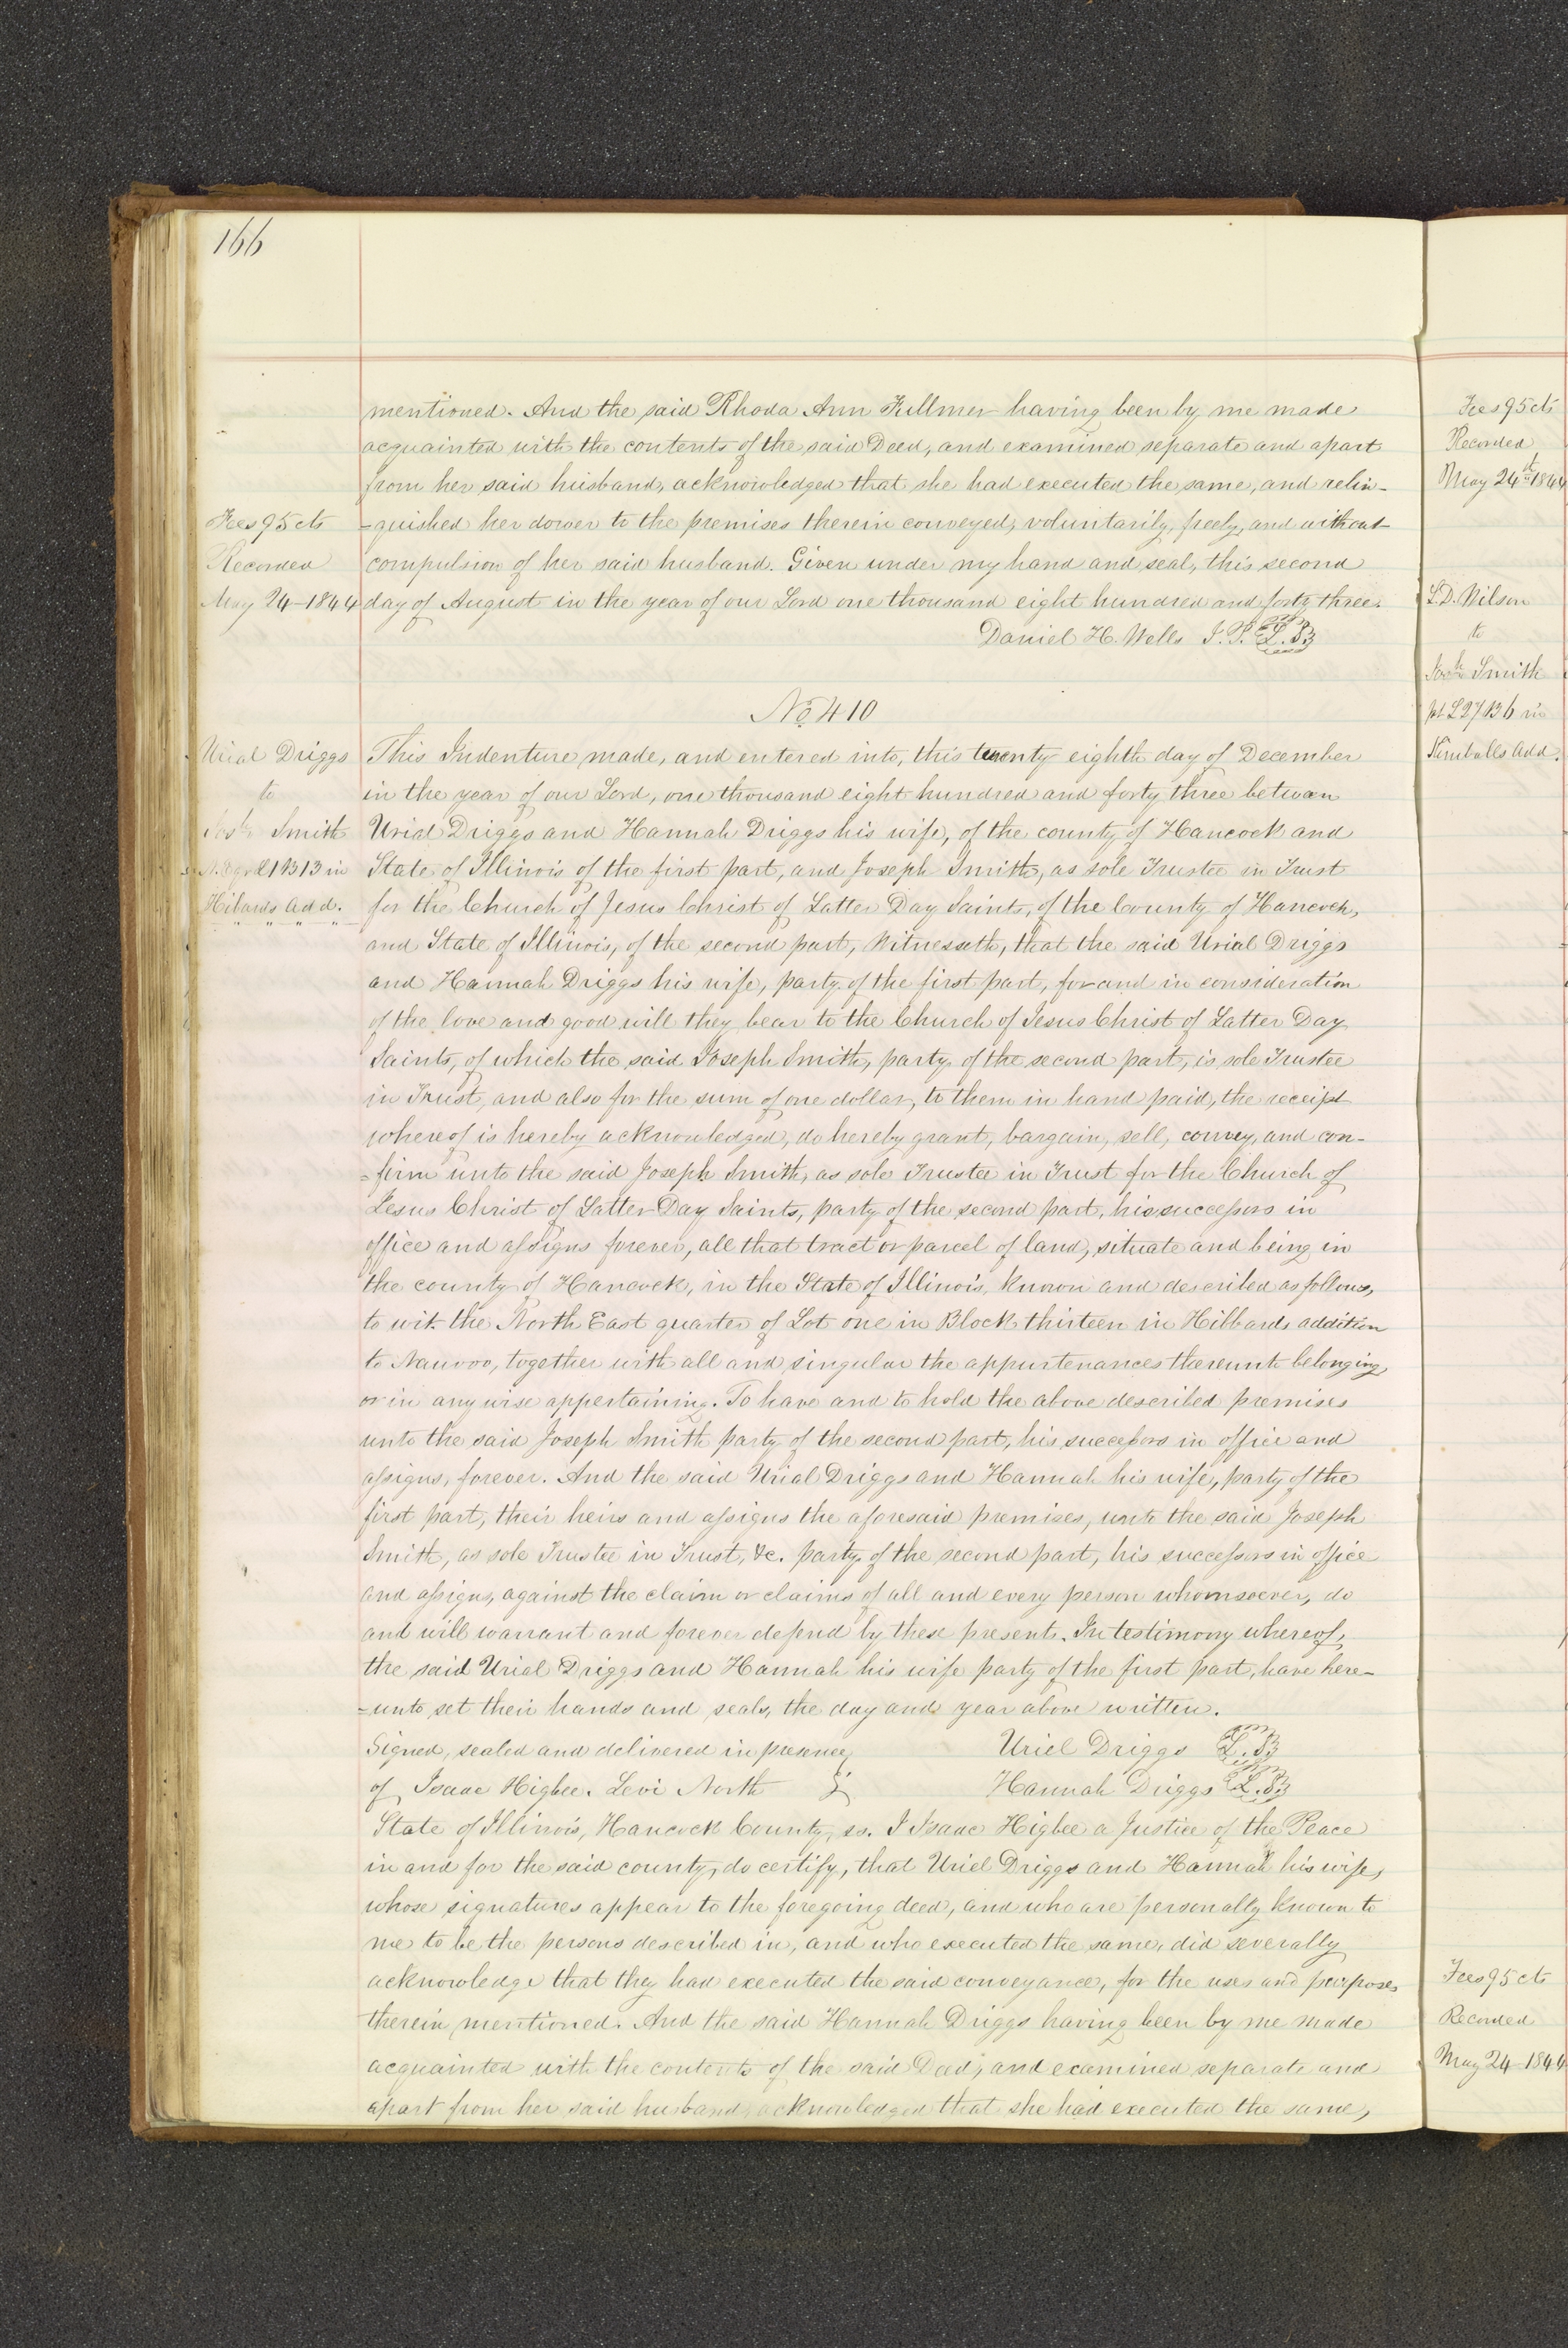 166
mentioned. And the said Rhoda Ann Fullmer having been by me made
acquainted with the contents of the said Deed, and examined separate and apart
from her said husband, acknowledged that she had executed the same, and relin-
Fees 95 cts
Recorded
May 24-1844
-quished her dower to the premises therein conveyed, voluntarily, freely, and without
compulsion of her said husband. Given under my hand and seal, this second
day of August in the year of our Lord one thousand eight hundred and forty three.
Daniel H. Wells J. P. L.S
No 410
Urial Driggs
to
Josh Smith
N. E qr L1 B13 in
Hibards Add.
This Indenture made, and entered into, this twenty eighth day of December
in the year of our Lord, one thousand eight hundred and forty three between
Urial Driggs and Hannah Driggs his wife, of the county of Hancock and
State of Illinois of the first part, and Joseph Smith, as sole Trustee in Trust
for the Church of Jesus Christ of Latter Day Saints, of the County of Hancock,
and State of Illinois, of the second part, Witnesseth, that the said Urial Driggs
and Hannah Driggs his wife, party of the first part, for and in consideration
of the love and good will they bear to the Church of Jesus Christ of Latter Day
Saints, of which the said Joseph Smith, party of the second part, is sole Trustee
in Trust, and also for the sum of one dollar, to them in hand paid, the receipt
whereof is hereby acknowledged, do hereby grant, bargain, sell, convey, and con-
-firm unto the said Joseph Smith, as sole Trustee in Trust for the Church of
Jesus Christ of Latter Day Saints, party of the second part, his successors in
office and assigns forever, all that tract or parcel of land, situate and being in
the county of Hancock, in the State of Illinois, known and described as follows,
to wit. the North East quarter of Lot one in Block thirteen in Hibbards addition
to Nauvoo, together with all and singular the appurtenances thereunto belonging
or in any wise appertaining. To have and to hold the above described premises
unto the said Joseph Smith party of the second part, his successors in office and
assigns, forever. And the said Urial Driggs and Hannah his wife, party of the
first part, their heirs and assigns the aforesaid premises, unto the said Joseph
Smith, as sole Trustee in Trust, &c. party of the second part, his successors in office
and assigns, against the claim or claims of all and every person whomsoever, do
and will warrant and forever defend by these presents. In testimony whereof,
the said Urial Driggs and Hannah his wife party of the first part, have here-
-unto set their hands and seals, the day and year above written.
Signed, sealed and delivered in presence
of Isaac Higbee. Levi North
Uriel Driggs L.S
Hannah Driggs L.S
State of Illinois, Hancock County, ss. I Isaac Higbee a Justice of the Peace
in and for the said county, do certify, that Uriel Driggs and Hannah his wife,
whose signatures appear to the foregoing deed, and who are personally known to
me to be the persons described in, and who executed the same, did severally
acknowledge that they had executed the said conveyance, for the uses and purposes
therein mentioned. And the said Hannah Driggs having been by me made
acquainted with the contents of the said Deed, and examined separate and
apart from her said husband, acknowledged that she had executed the same,
Fees 95 cts
Recorded
May 24th 1844
L. D. Wilson
to
Josh Smith
pt L 27 B 6 in
Kimballs Add.
Fees 95 cts
Recorded
May 24 1844